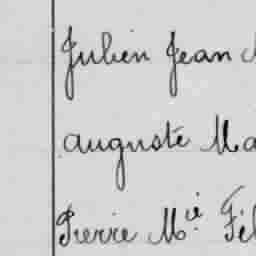 Julien Jean
auguste Ma
Pierre M.ie Fél